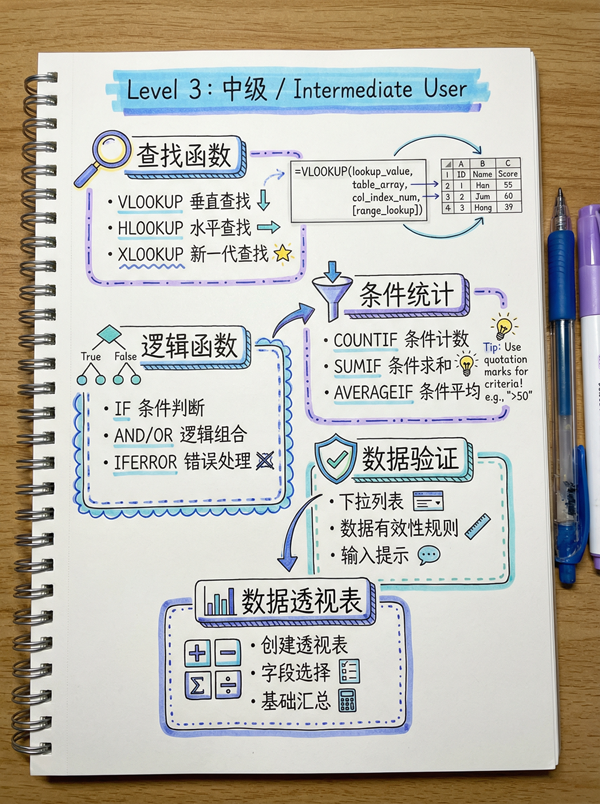 Level 3: 中级 / Intermediate User
查找函数
• VLOOKUP 垂直查找
• HLOOKUP 水平查找
• XLOOKUP 新一代查找
=VLOOKUP(lookup_value,
table_array,
col_index_num,
[range_lookup])
A B C
1 ID Name Score
2 1 Han 55
3 2 Jum 60
4 3 Hang 39
条件统计
• COUNTIF 条件计数
• SUMIF 条件求和
• AVERAGEIF 条件平均
Tip: Use
quotation
marks for
criteria!
e.g., ">50"
True False
逻辑函数
• IF 条件判断
• AND/OR 逻辑组合
• IFERROR 错误处理
数据验证
• 下拉列表
• 数据有效性规则
• 输入提示
数据透视表
+ −
Σ ÷
• 创建透视表
• 字段选择
• 基础汇总